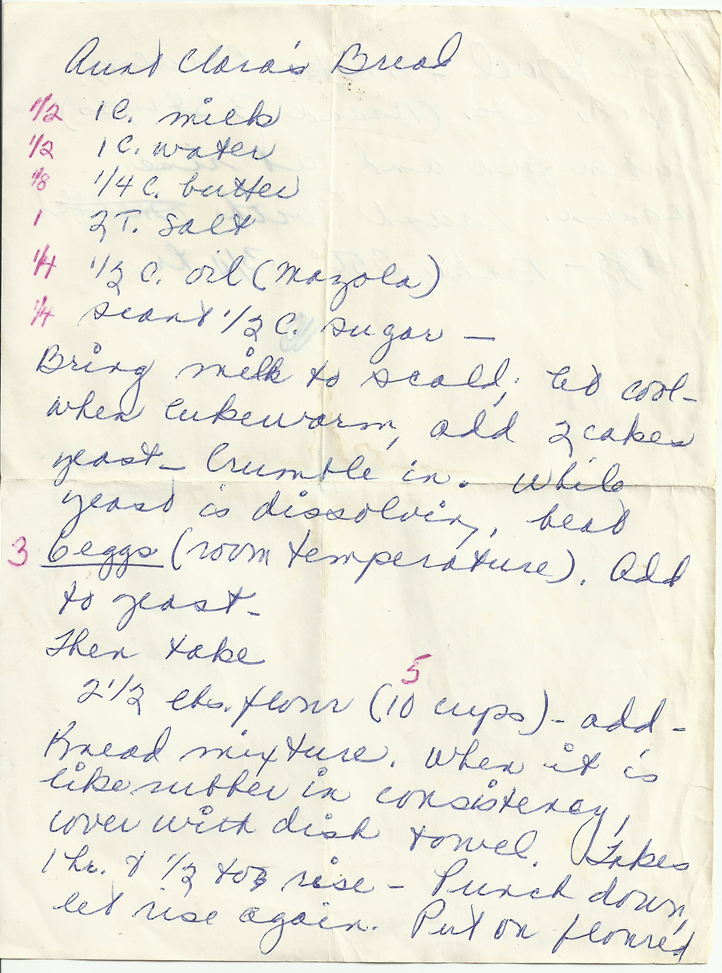 Aunt Clara's Bread
1/2 1 C. milk
1/2 1 C. water
1/8 1/4 C. butter
1 2 T. salt
1/4 1/2 C. oil (Mazola)
1/4 scant 1/2 C. sugar —
Bring milk to scald; let cool-
when lukewarm, add 2 cakes
yeast - Crumble in. While
yeast is dissolving, beat
3 6 eggs (room temperature). Add
to yeast -
Then take
5
2 1/2 lbs. flour (10 cups) - add -
Knead mixture. When it is
like rubber in consistency,
cover with dish towel. Takes
1 hr. & 1/2 to rise - Punch down,
let rise again. Put on floured